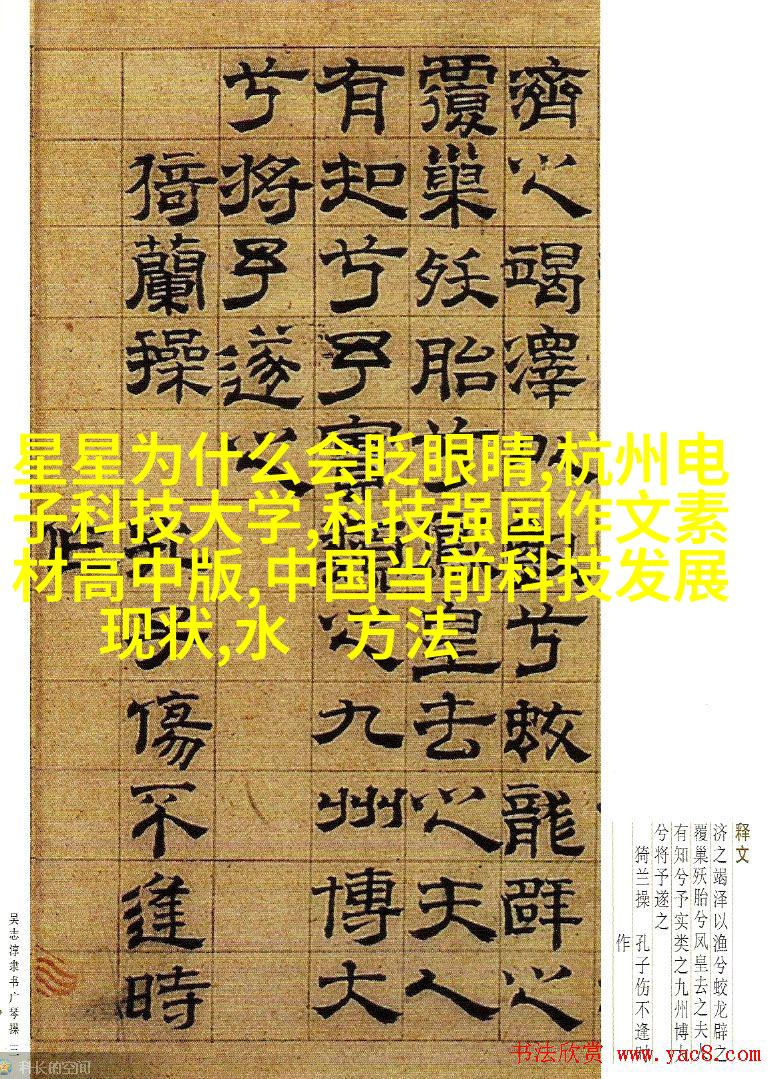 濟之竭澤以漁兮蛟龍辟之
覆巢殀胎兮鳳皇去之夫人
有知兮予實類之九州博大
兮將予遂之
猗蘭操 孔子傷不逢時
作
星星为什么会眨眼睛,杭州电
子科技大学,科技强国作文素
材高中版,中国当前科技发展
现状,水 方法
释文
济之竭泽以渔兮蛟龙辟之
覆巢殀胎兮凤皇去之夫人
有知兮予实类之九州博
兮将予遂之
猗兰操 孔子伤不逢时
作
吴志淳隶书广琴操 三
科长的空间
书法欣赏 www.yac8.com